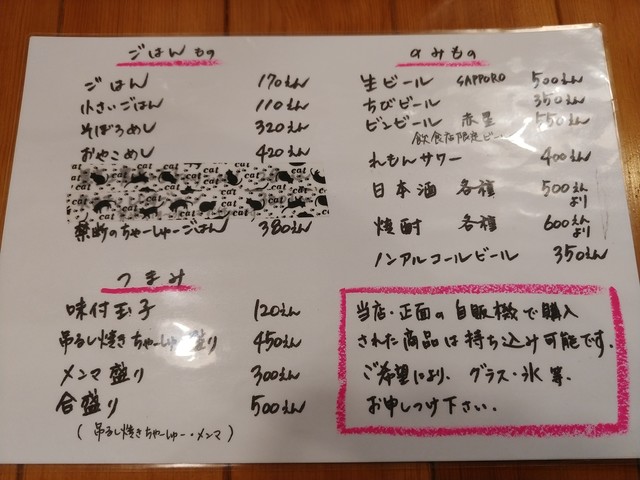 ごはんもの
ごはん 170えん
小さいごはん 110えん
そぼろめし 320えん
おやこめし 420えん
cat cat cat cat cat
禁断のちゃーしゅーごはん 380えん
つまみ
味付玉子 120えん
吊るし焼きちゃーしゅー盛り 450えん
メンマ盛り 300えん
合盛り 500えん
(吊るし焼きちゃーしゅー・メンマ)
のみもの
生ビール SAPPORO 500えん
ちびビール 350えん
ビンビール 赤星 550えん
飲食店限定ビー
れもんサワー 400えん
日本酒 各種 500えんより
焼酎 各種 600えんより
ノンアルコールビール 350えん
当店・正面の自販機で購入
された商品は持ち込み可能です。
ご希望により、グラス・氷等、
お申しつけ下さい。